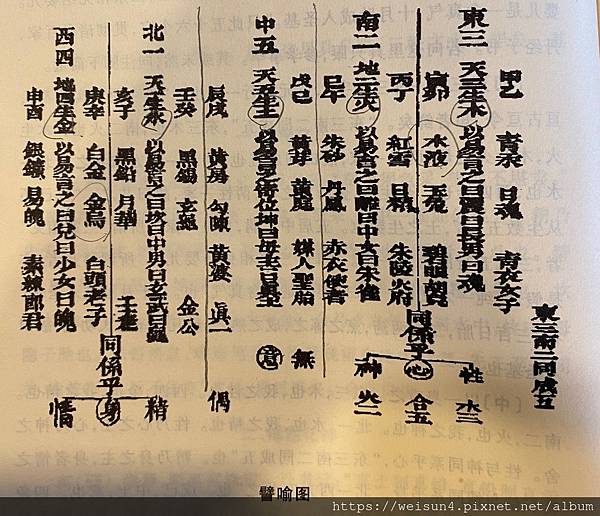 東三南二同成五
東三 天三生木 以易言之曰震曰長男曰魂
甲乙 青汞 日魂 青衣女子
寅卯 木液 玉兔 碧眼胡兒
性 木三
同係乎心 合五
南二 地二生火 以易言之曰離曰中女曰朱雀
丙丁 紅雲 日精 朱陵火府
巳午 朱砂 丹鳳 赤衣使者
神 火二
中五 天五生土
戊己 黃芽 黃庭 嬰兒聖胎 無
意
辰戌 黃房 勾陳 黃婆 真一 偶
北一 天一生水 以易言之曰坎曰中男曰玄武曰
壬癸 黑錫 玄龜 金公
亥子 黑鉛 月
精
同係乎身
西四 地四生金 以易言之曰兌曰少女曰魄
庚辛 白金 金烏 白頭老子
申酉 銀鑛 易魄 素練郎君
情
譬喻图
https://weisun4.pixnet.net/album